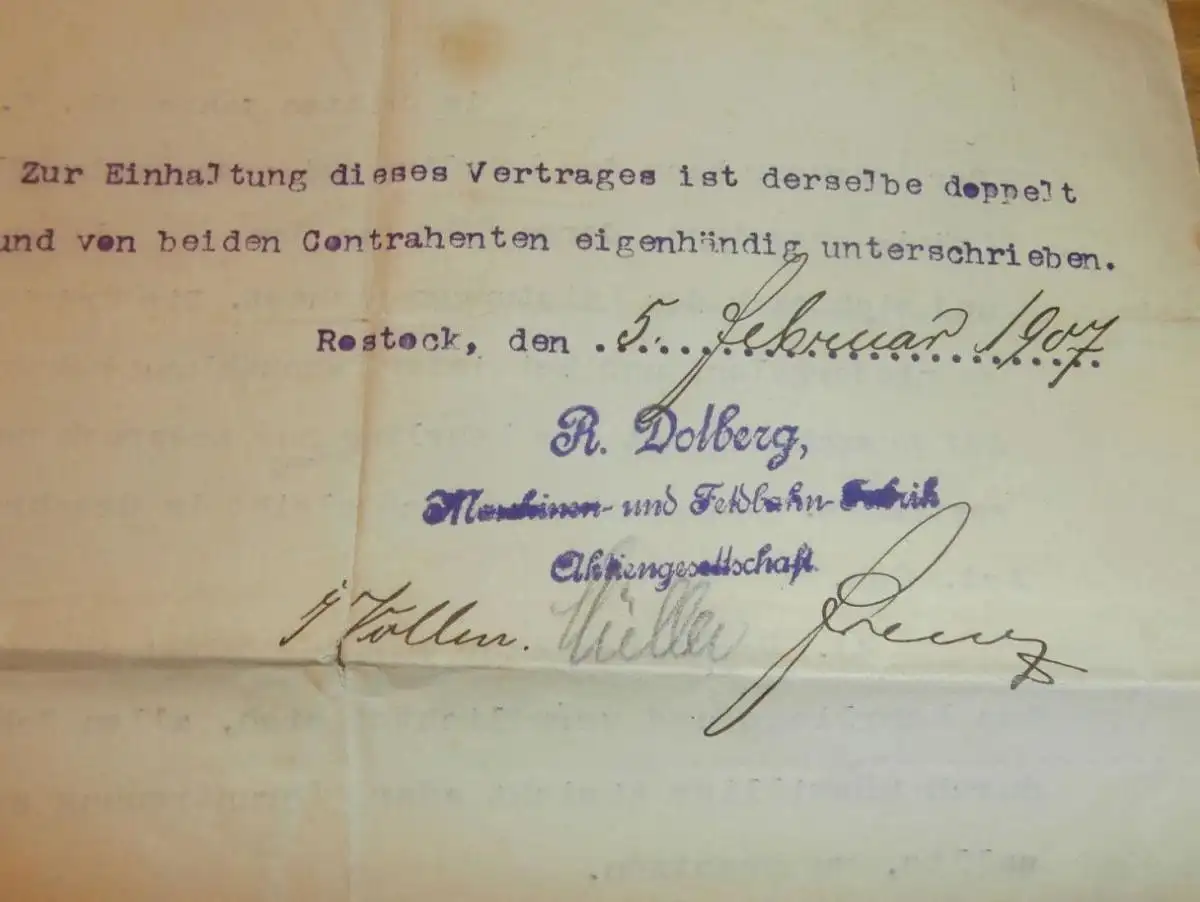 Zur Einhaltung dieses Vertrages ist derselbe doppelt
und von beiden Contrahenten eigenhändig unterschrieben.
Rostock, den 5. Februar 1907
R. Dolberg,
Maschinen- und Feldbahn-Fabrik
Aktiengesellschaft.
Müller